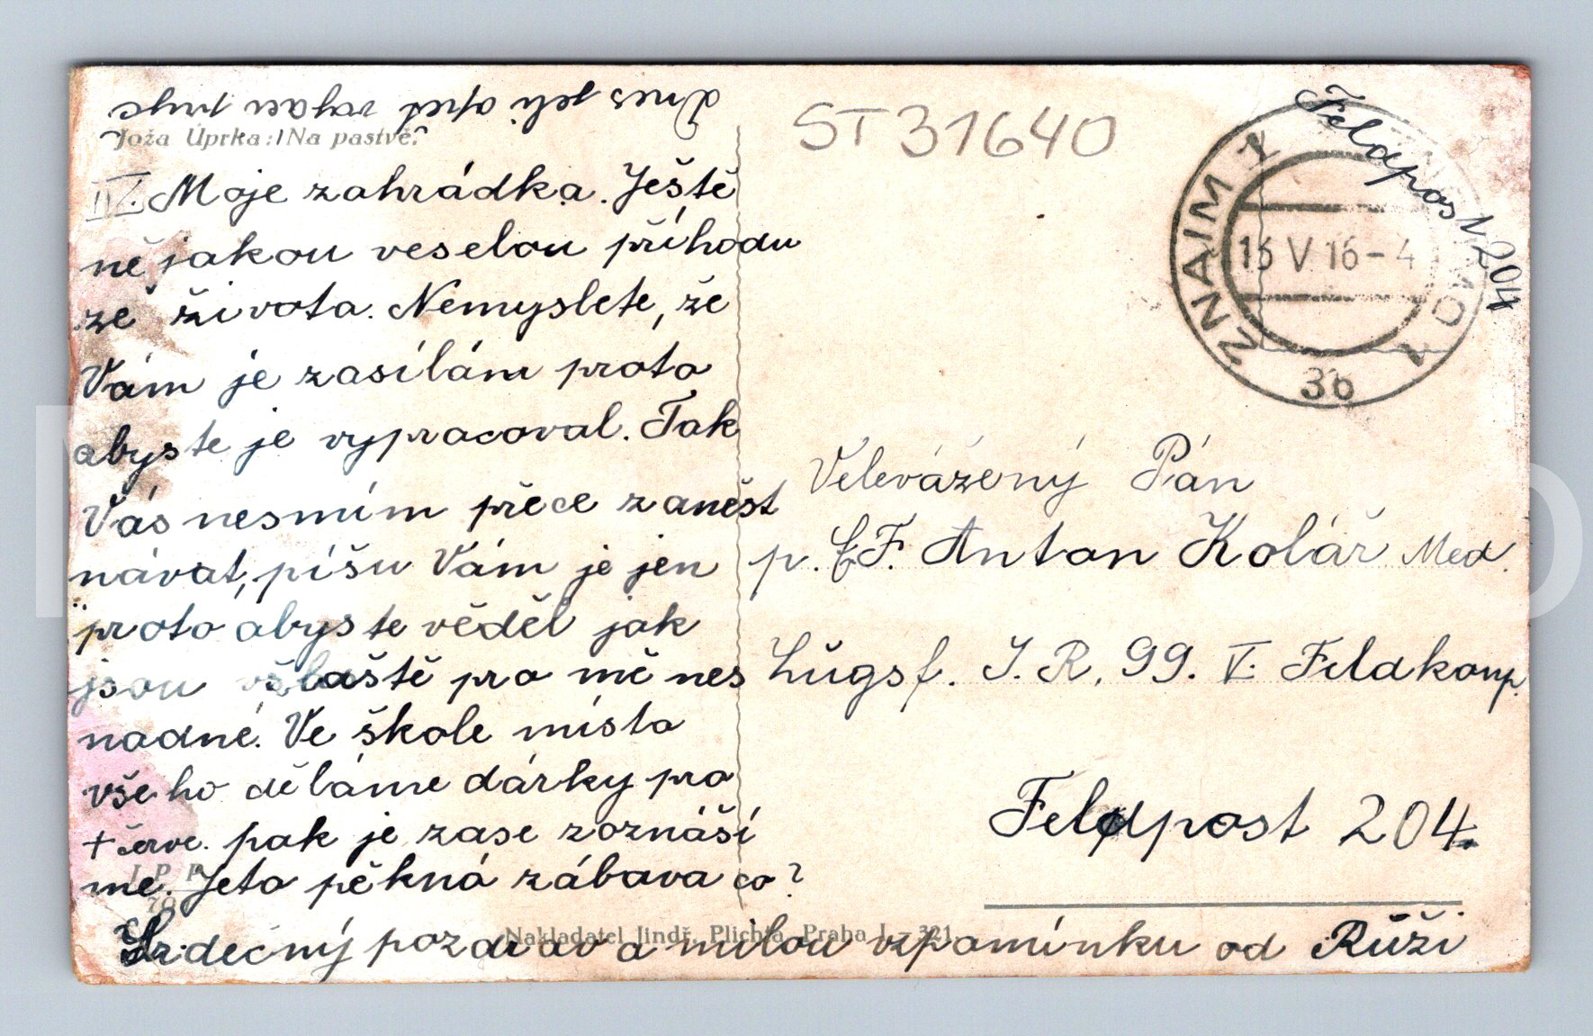 Dnes
Joža Úprka: Na pastvě.
IV. Moje zahrádka. Ještě
nějakou veselou příhodu
ze života. Nemyslete, že
Vám je zasílám proto
abyste je vypracoval. Tak
Vás nesmím přece zaněst
návat, píšu Vám je jen
proto abyste věděl jak
jsou zvláště pro mě nes
nadné. Ve škole místo
všeho děláme dárky pro
+ červe. pak je zase roznáší
me. Jeto pěkná zábava co?
Srdečný pozdrav a milou vzpomínku od Růži
Nakladatel Jindř. Plichta, Praha I.-321.
ST31640
Feldpost 204
ZNAIM 1
13 V 16-4
ZNOJMO 1
3b
Velevážený Pán
p. EF. Anton Kolář Med.
Lůgsf. I. R. 99. V. Feldkomp.
Feldpost 204.